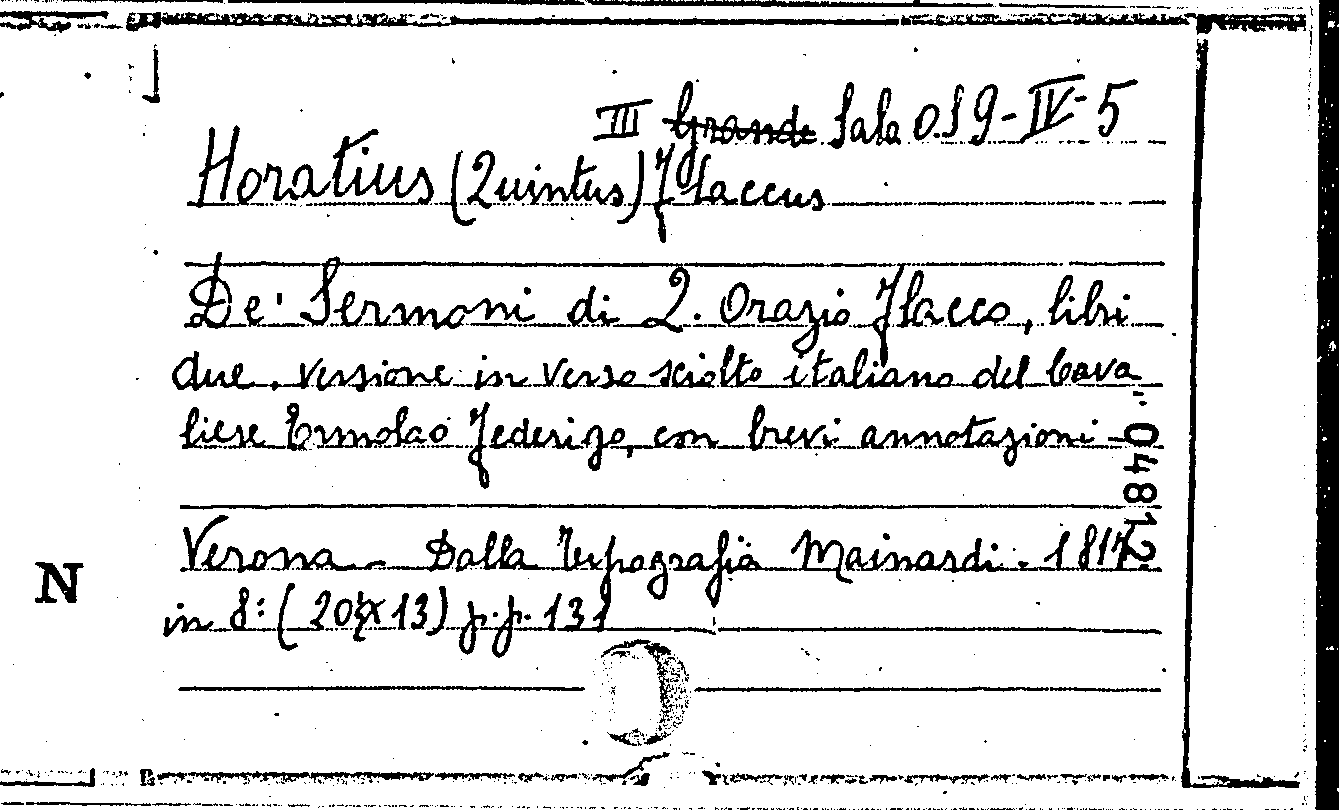 III Grande Sala O.S 9-IV-5
Horatius (Quintus) Flaccus
De' Sermoni di Q. Orazio Flacco, libri
due. versione in verso sciolto italiano del Cava
liere Ermolao Federigo, con brevi annotazioni -
04812
Verona - Dalla Tipografia Mainardi. 181
in 8: (20 x 13) p.p. 131
N